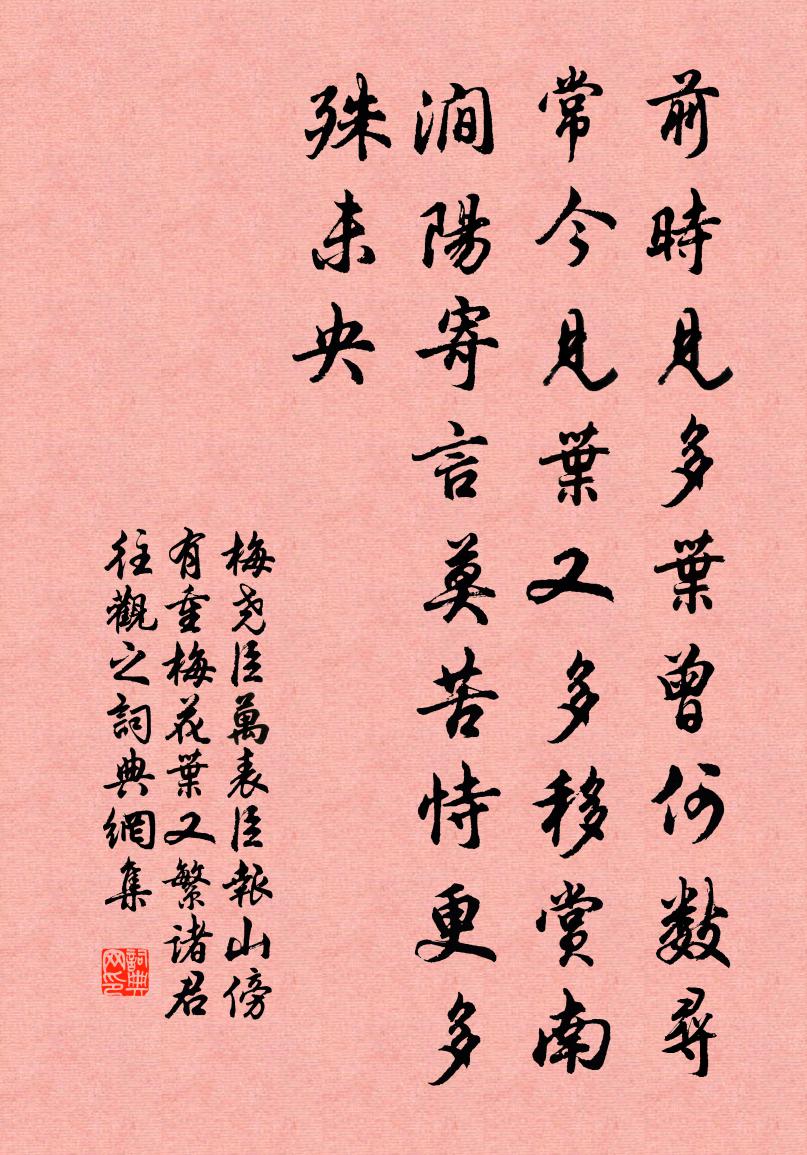 前時見多葉曾何數尋
常今見葉又多移賞南
澗陽寄言莫苦恃更多
殊未央
梅堯臣萬表臣報山傍
有重梅花葉又繁諸君
往觀之詞典網集
詞典
网印